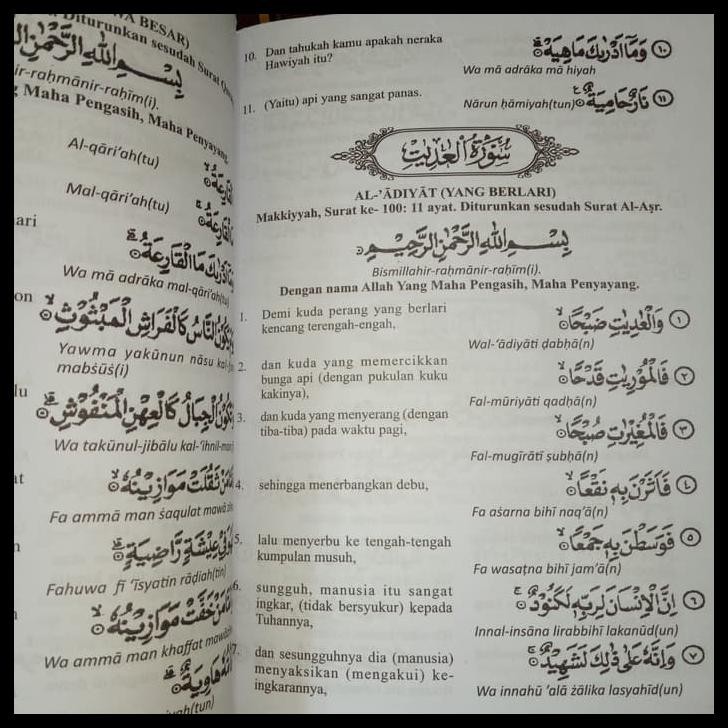 WA BESAR)
Diturunkan sesudah Surat
بِسْمِ اللهِ الرَّحْمٰنِ
ir-raḥmānir-raḥīm(i).
Maha Pengasih, Maha Penyayang.
Al-qāri'ah(tu)
Mal-qāri'ah(tu)
ari
Wa mā adrāka mal-qāri'ah(tu)
on
Yawma yakūnun nāsu
mabṡūṡ(i)
lu
Wa takūnul-jibālu kal-'ihnil-
at
Fa ammā man ṡaqulat
Fahuwa fī 'īsyatin rāḍiah(tin)
Wa ammā man khaffat
10. Dan tahukah kamu apakah neraka
Hawiyah itu?
وَمَآ اَدْرٰىكَ مَاهِيَهْۗ ⑩
Wa mā adrāka mā hiyah
11. (Yaitu) api yang sangat panas.
نَارٌ حَامِيَةٌ ⑪
Nārun ḥāmiyah(tun)
سُوْرَةُ الْعٰدِيٰتِ
AL-'ĀDIYĀT (YANG BERLARI)
Makkiyyah, Surat ke- 100: 11 ayat. Diturunkan sesudah Surat Al-Aṣr.
بِسْمِ اللهِ الرَّحْمٰنِ الرَّحِيْمِ
Bismillahir-raḥmānir-raḥīm(i).
Dengan nama Allah Yang Maha Pengasih, Maha Penyayang.
1. Demi kuda perang yang berlari
kencang terengah-engah,
وَالْعٰدِيٰتِ ضَبْحًاۙ ①
Wal-'ādiyāti ḍabḥā(n)
2. dan kuda yang memercikkan
bunga api (dengan pukulan kuku
kakinya),
فَالْمُوْرِيٰتِ قَدْحًاۙ ②
Fal-mūriyāti qadḥā(n)
3. dan kuda yang menyerang (dengan
tiba-tiba) pada waktu pagi,
فَالْمُغِيْرٰتِ صُبْحًاۙ ③
Fal-mugīrāti ṣubḥā(n)
4. sehingga menerbangkan debu,
فَاَثَرْنَ بِهٖ نَقْعًاۙ ④
Fa aṡarna bihī naq'ā(n)
5. lalu menyerbu ke tengah-tengah
kumpulan musuh,
فَوَسَطْنَ بِهٖ جَمْعًاۙ ⑤
Fa wasaṭna bihī jam'ā(n)
6. sungguh, manusia itu sangat
ingkar, (tidak bersyukur) kepada
Tuhannya,
اِنَّ الْاِنْسَانَ لِرَبِّهٖ لَكَنُوْدٌۚ ⑥
Innal-insāna lirabbihī lakanūd(un)
7. dan sesungguhnya dia (manusia)
menyaksikan (mengakui) ke-
ingkarannya,
وَاِنَّهٗ عَلٰى ذٰلِكَ لَشَهِيْدٌۚ ⑦
Wa innahū 'alā żālika lasyahīd(un)